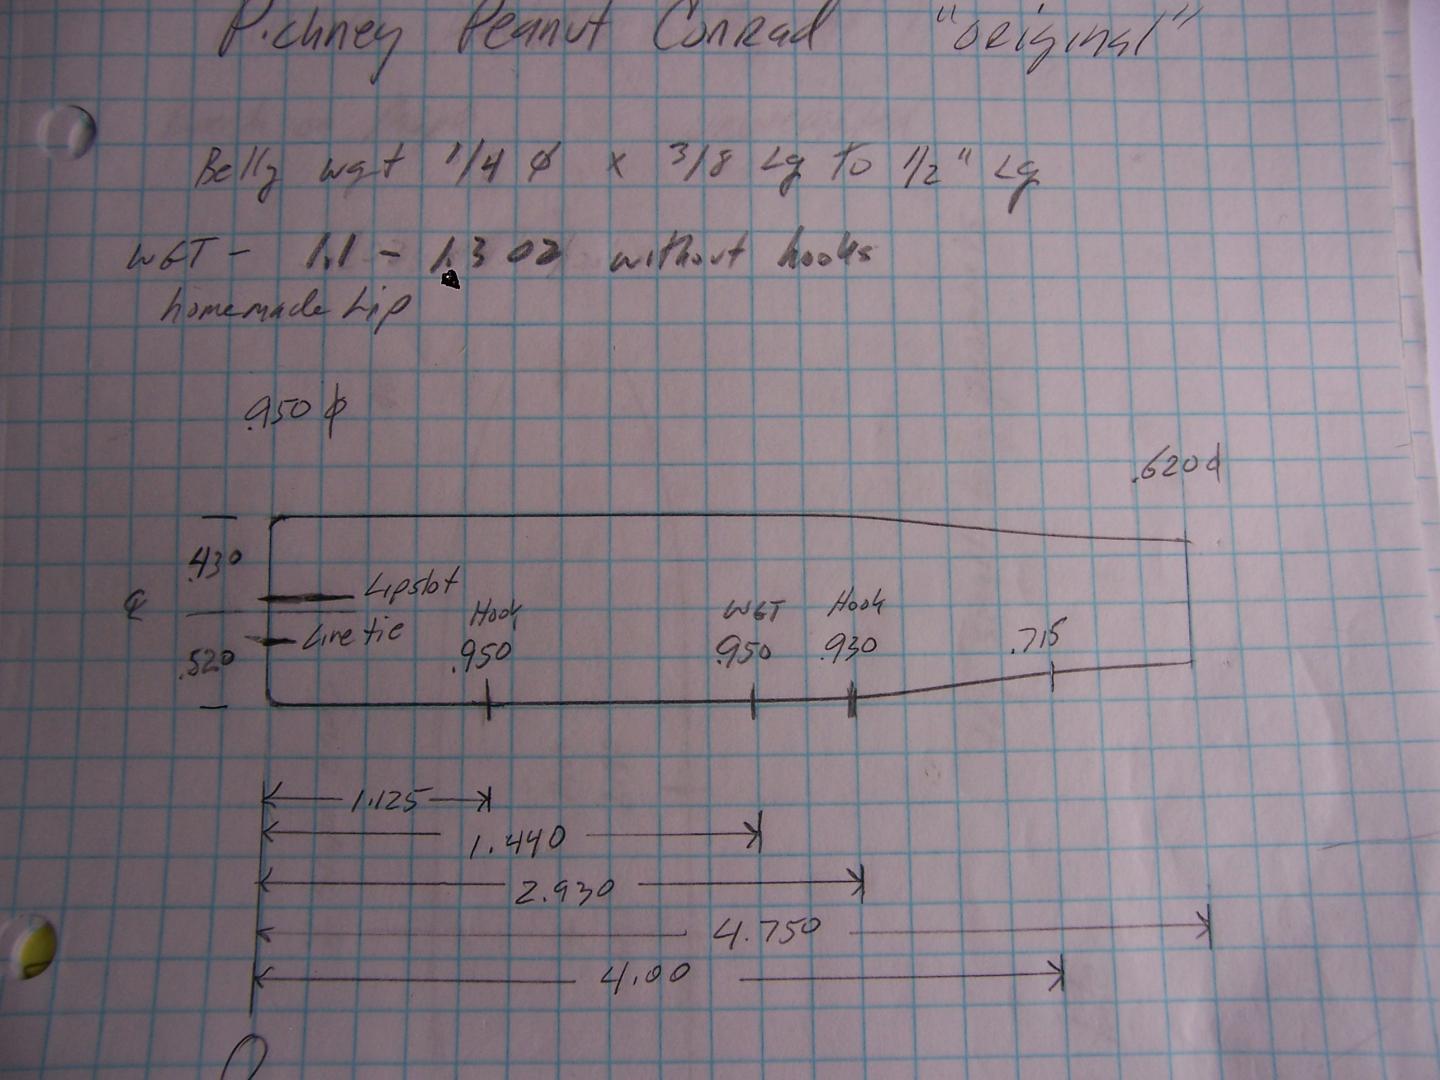 Pichney Peanut Conrad "original"
Belly wgt 1/4 ϕ x 3/8 Lg to 1/2" Lg
WGT - 1.1 - 1.3 oz without hooks
homemade Lip
.950 ϕ
.620 ϕ
.430
Lipslot
℄
Hook
WGT
Hook
Line tie
.520
.950
.950
.930
.715
1.125
1.440
2.930
4.750
4.00